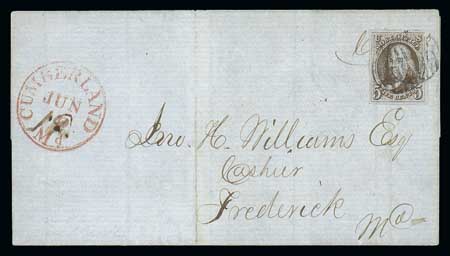 CUMBERLAND
JUN
Md.
5 5
Jno. H. Williams Esq
Cashier
Frederick
Md